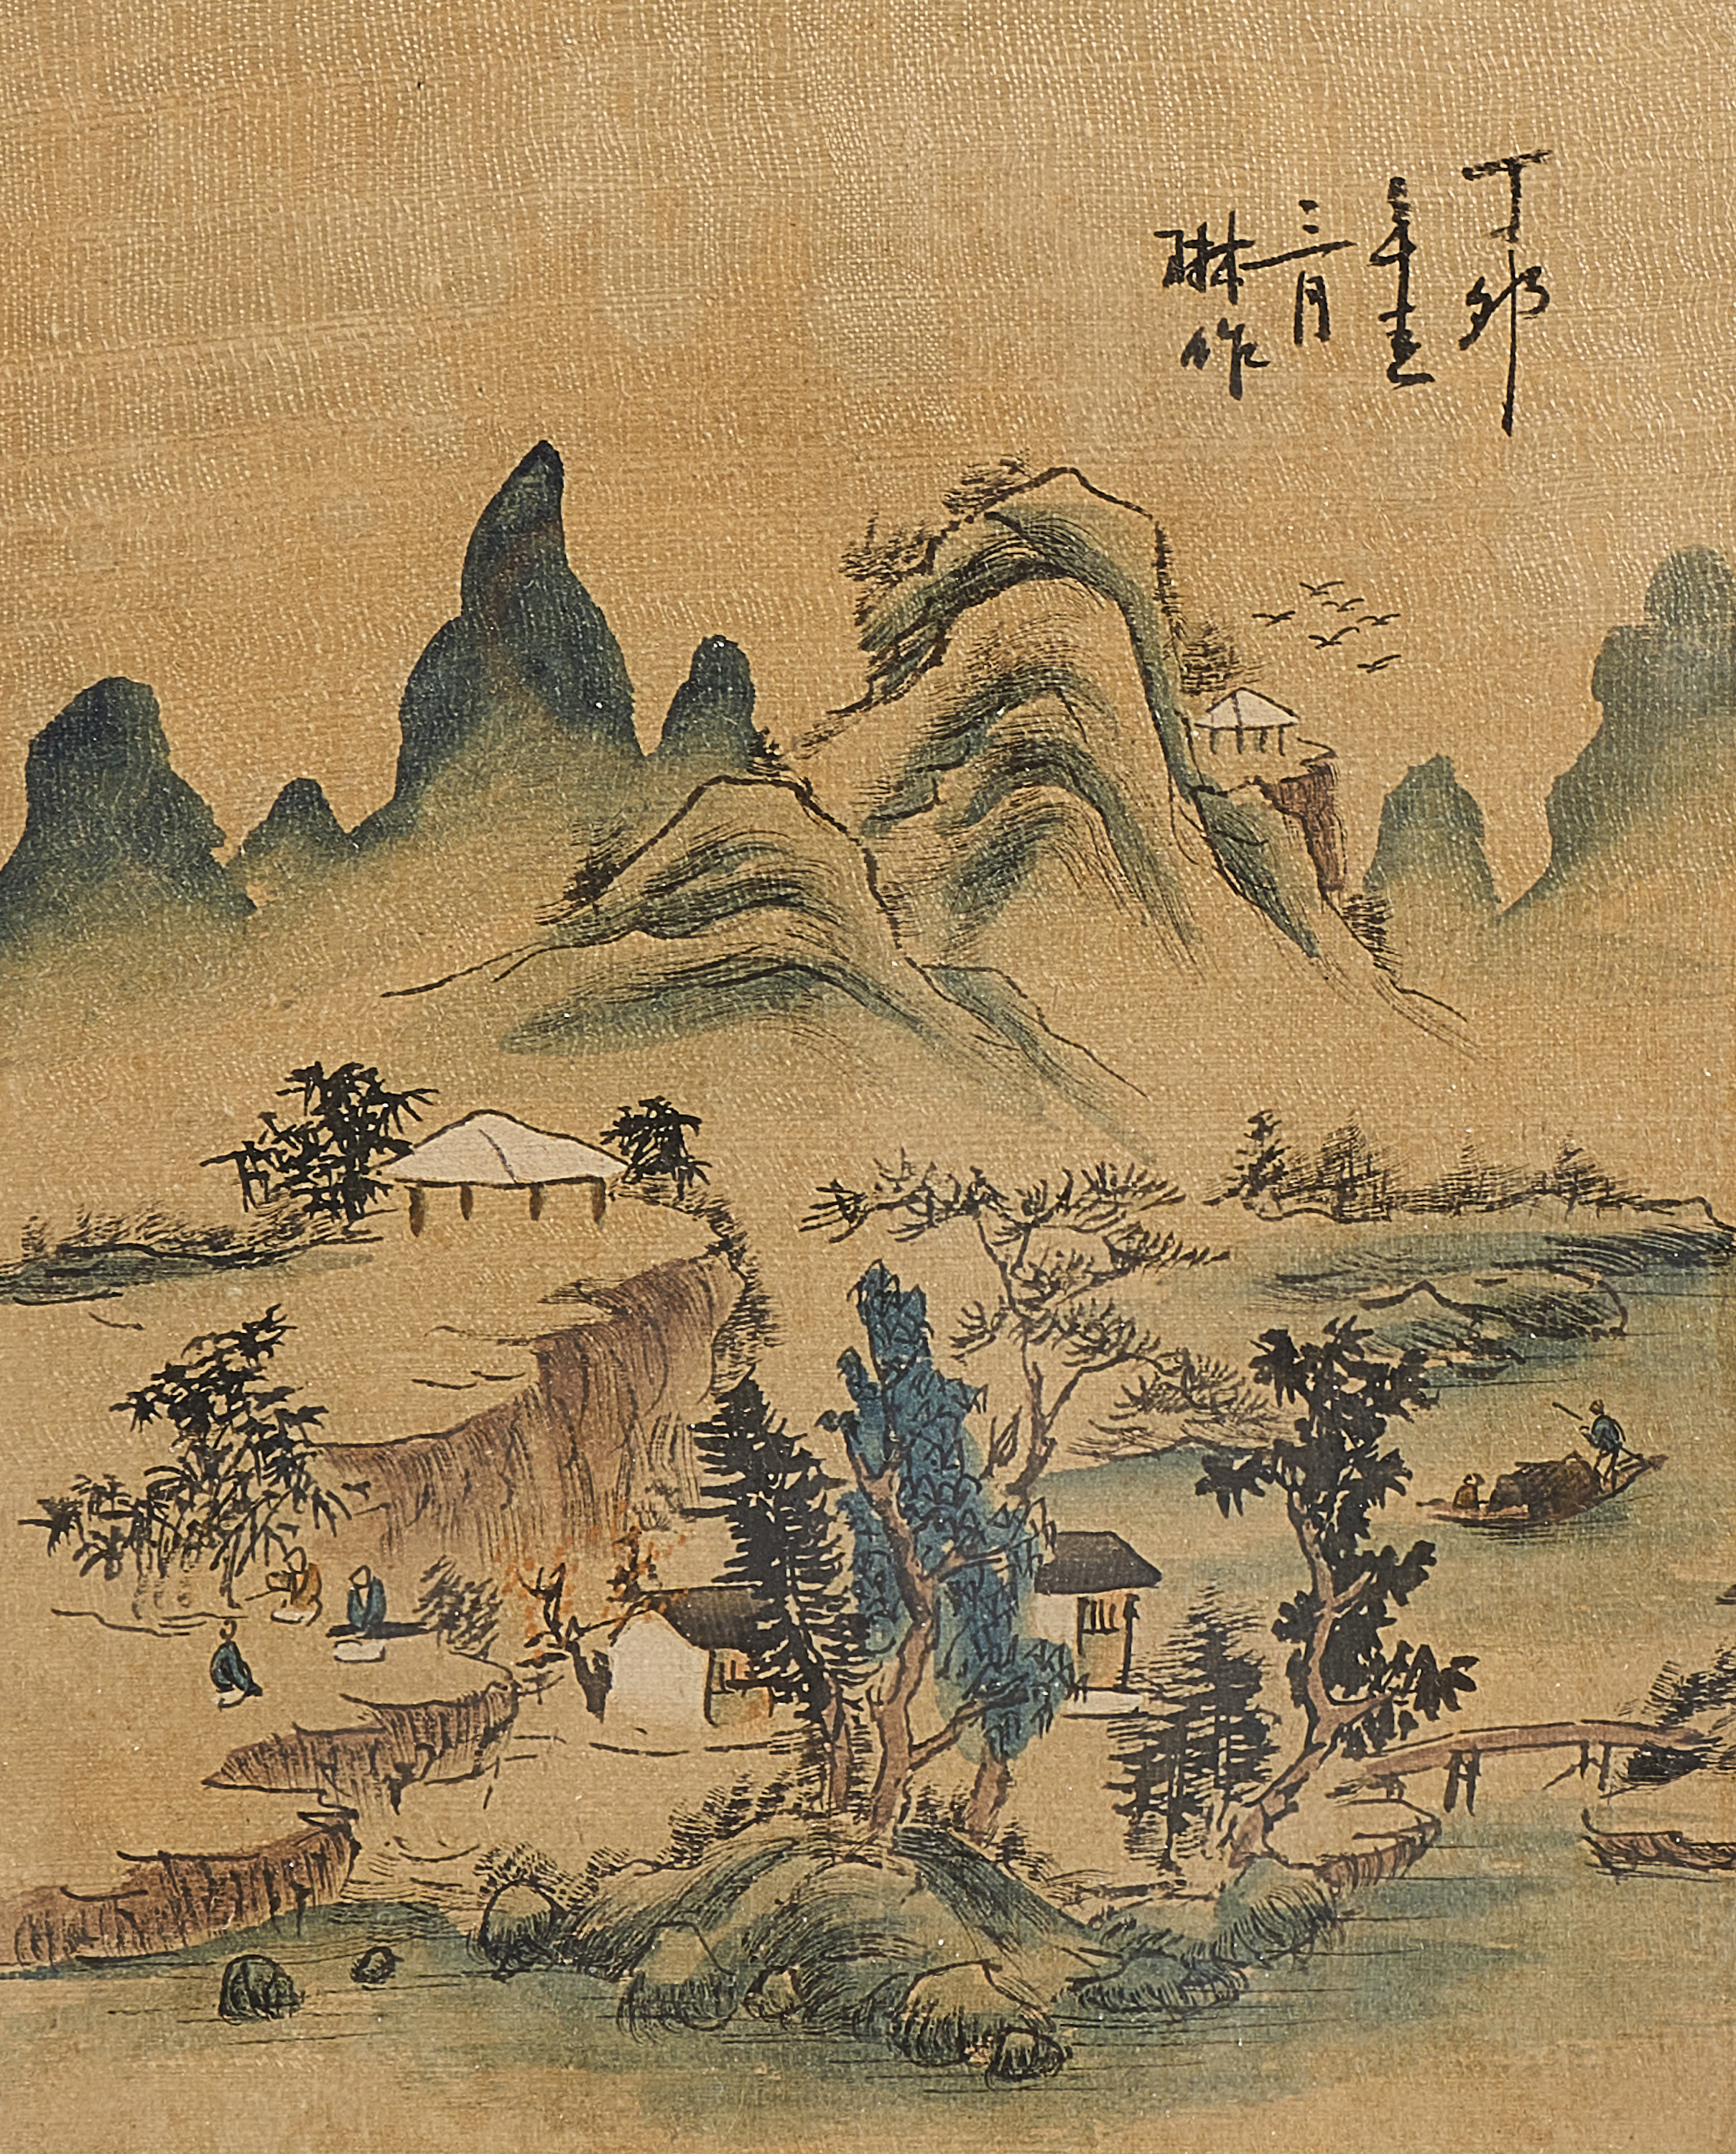 丁卯
三月
琳作